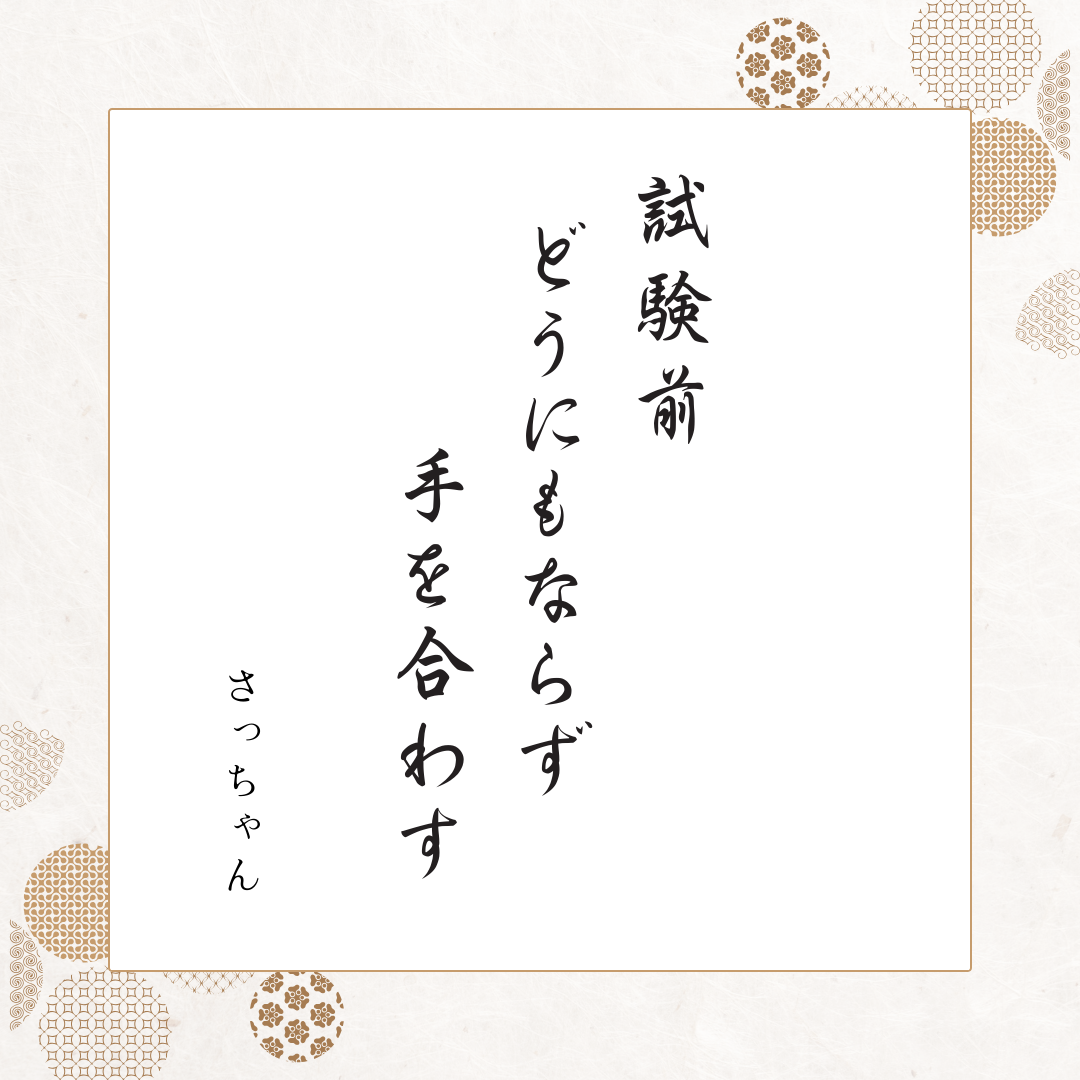 試験前
どうにもならず
手を合わす
さっちゃん